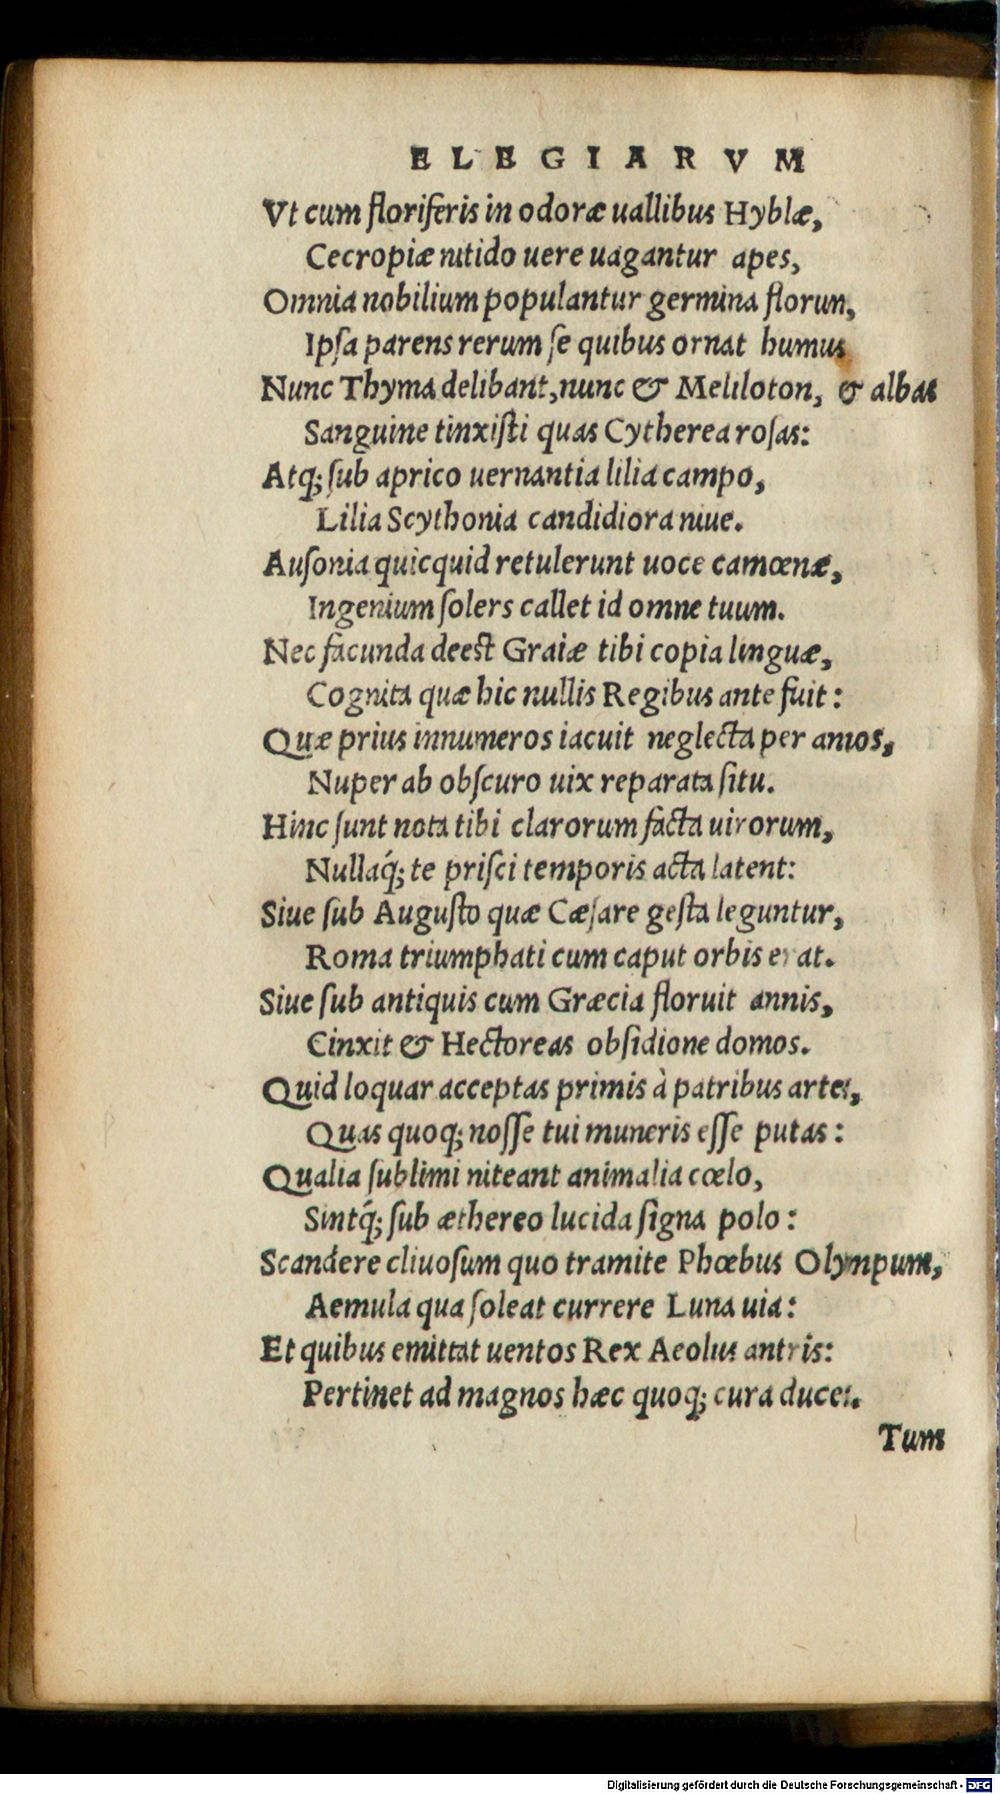 ELEGIARVM
Vt cum floriferis in odoræ uallibus Hyblæ,
Cecropiæ nitido uere uagantur apes,
Omnia nobilium populantur germina florum,
Ipſa parens rerum ſe quibus ornat humus
Nunc Thyma delibant, nunc & Meliloton, & albas
Sanguine tinxiſti quas Cytherea roſas:
Atq; ſub aprico uernantia lilia campo,
Lilia Scythonia candidiora niue.
Auſonia quicquid retulerunt uoce camœnæ,
Ingenium ſolers callet id omne tuum.
Nec facunda deeſt Graiæ tibi copia linguæ,
Cognita quæ hic nullis Regibus ante fuit:
Quæ prius innumeros iacuit neglecta per annos,
Nuper ab obſcuro uix reparata ſitu.
Hinc ſunt nota tibi clarorum facta uirorum,
Nullaq́; te priſci temporis acta latent:
Siue ſub Auguſto quæ Cæſare geſta leguntur,
Roma triumphati cum caput orbis erat.
Siue ſub antiquis cum Græcia floruit annis,
Cinxit & Hectoreas obſidione domos.
Quid loquar acceptas primis à patribus artes,
Quas quoq; noſſe tui muneris eſſe putas:
Qualia ſublimi niteant animalia cœlo,
Sintq́; ſub æthereo lucida ſigna polo:
Scandere cliuoſum quo tramite Phœbus Olympum,
Aemula qua ſoleat currere Luna uia:
Et quibus emittat uentos Rex Aeolus antris:
Pertinet ad magnos hæc quoq; cura duces.
Tum
Digitalisierung gefördert durch die Deutsche Forschungsgemeinschaft - DFG